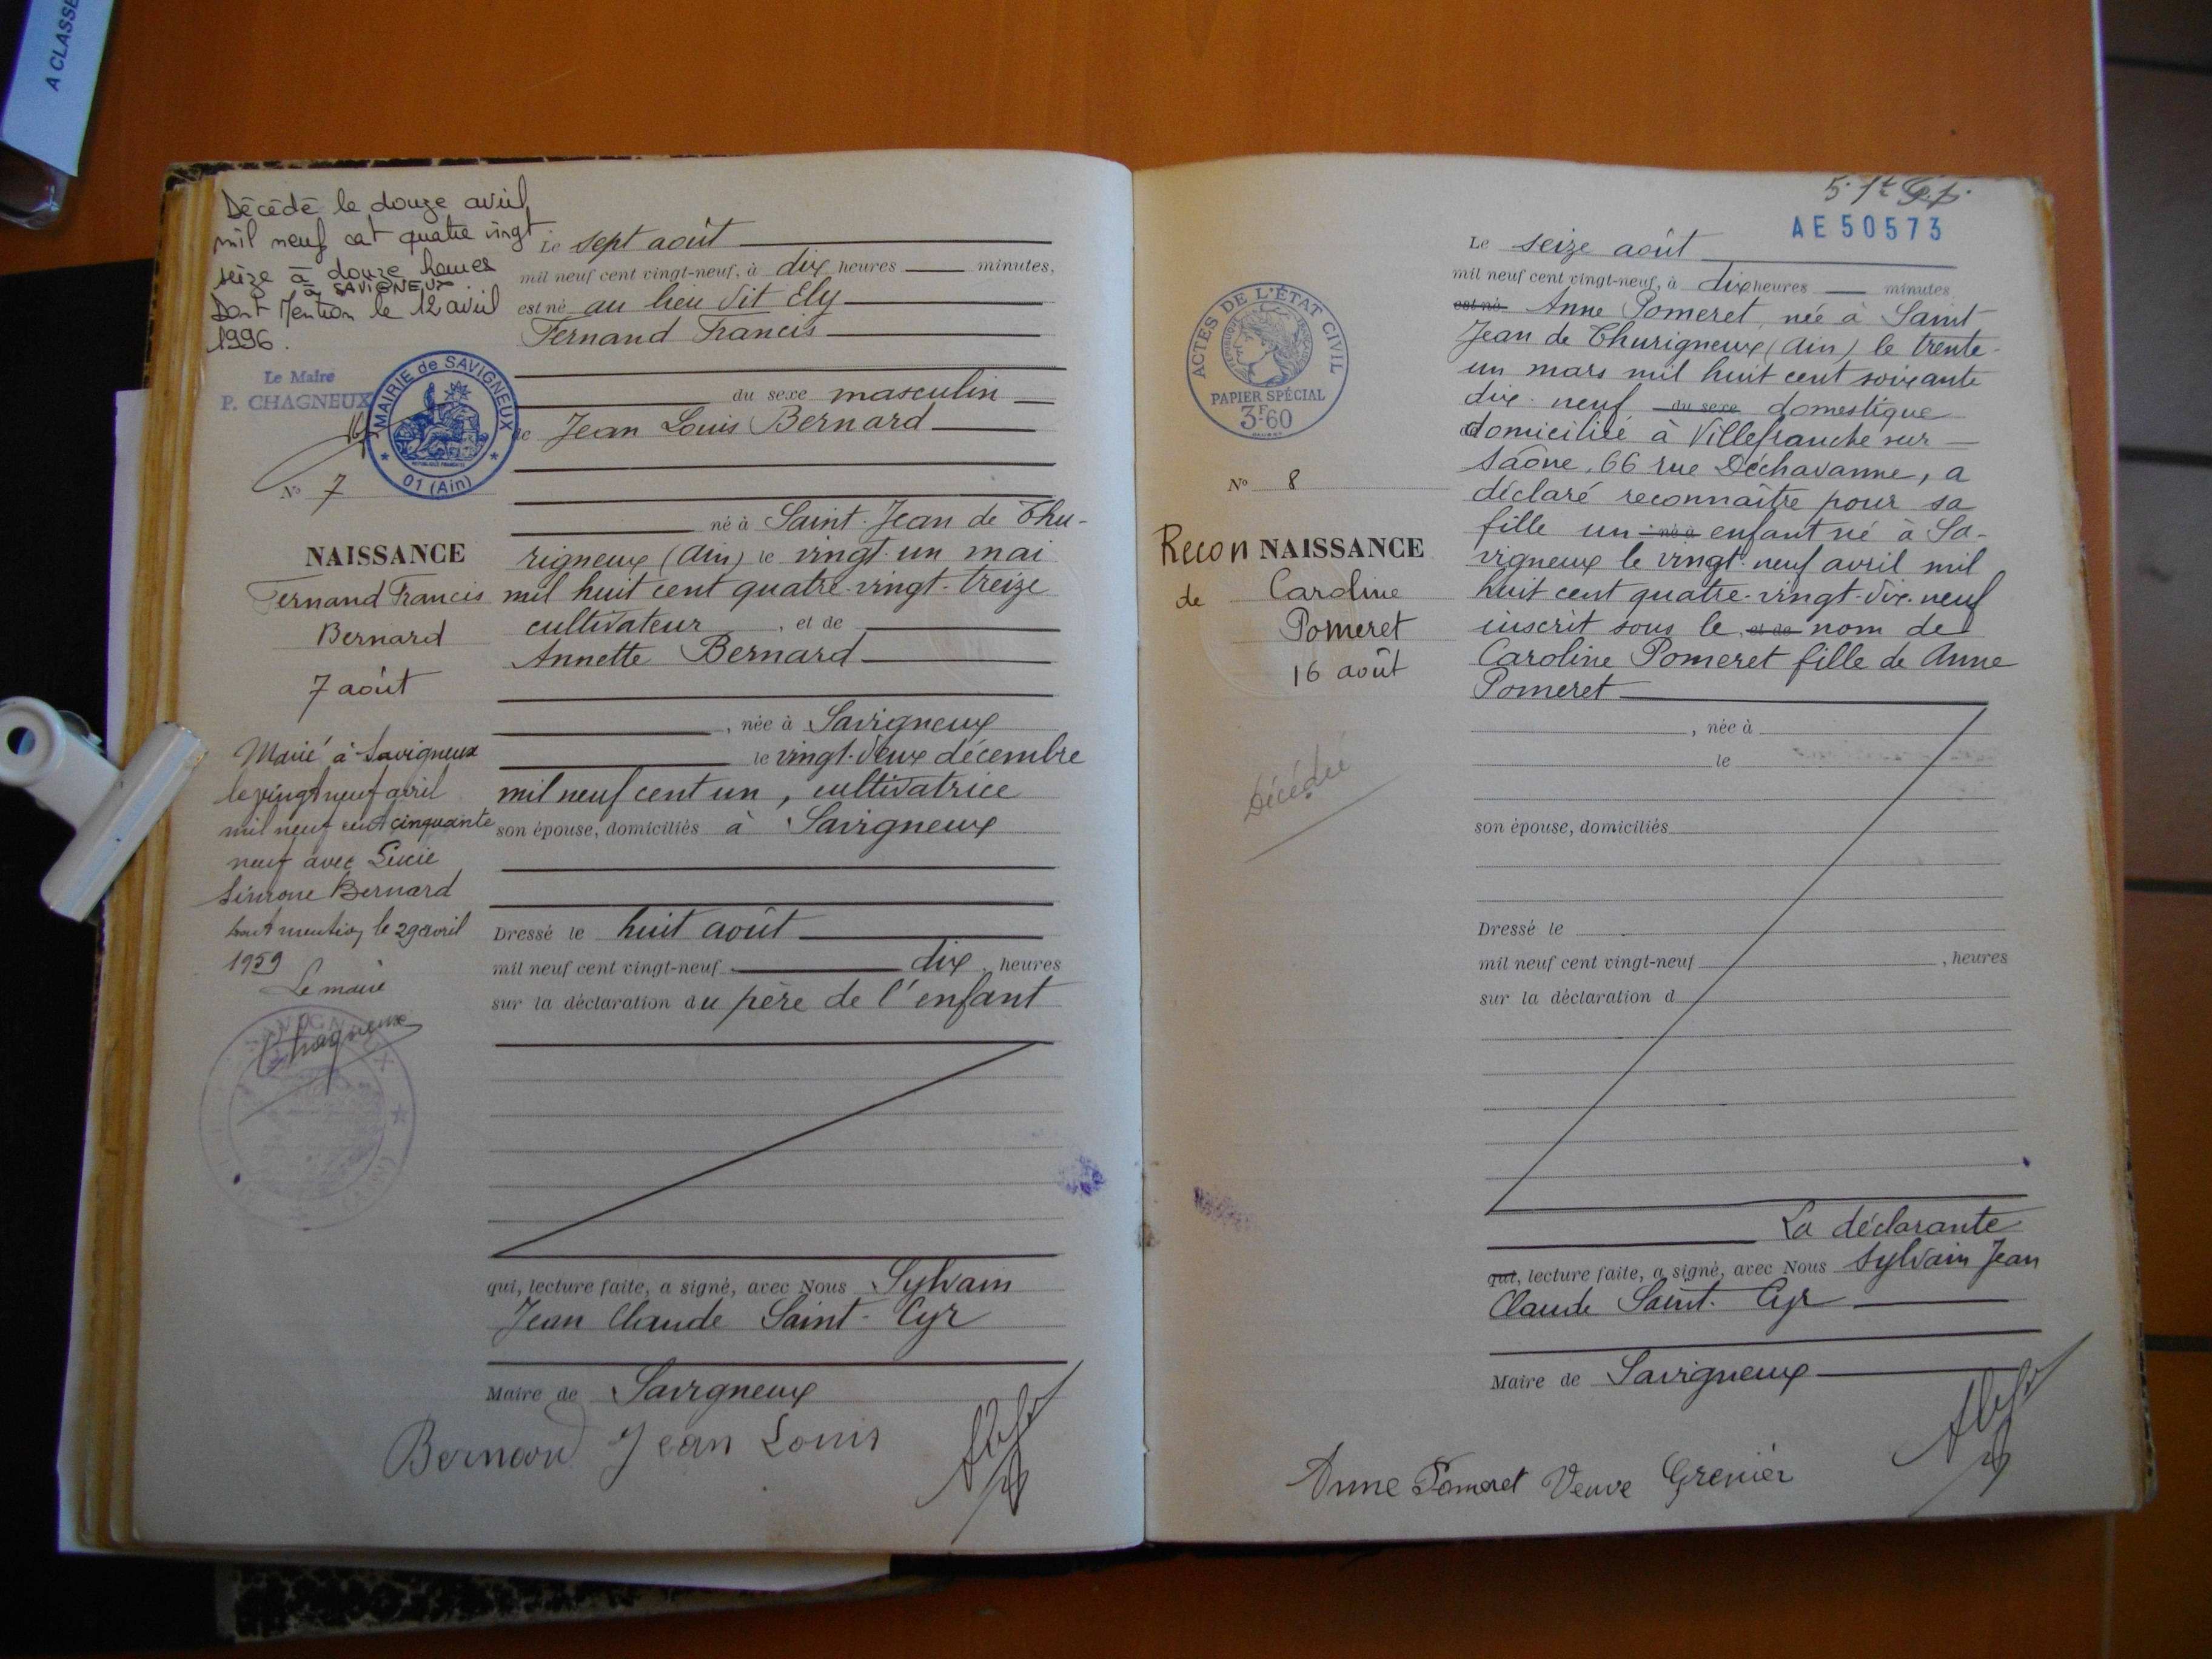 A CLASSE
Décédé le douze avril
mil neuf cat quatre vingt
seize à douze heures
à SAVIGNEUX
Dont Mention le 12 avril
1996.
Le Maire
P. CHAGNEUX
MAIRIE de SAVIGNEUX
01 (Ain)
N° 7
NAISSANCE
Fernand Francis
Bernard
7 août
Marié à Savigneux
le vingt neuf avril
mil neuf cent cinquante
neuf avec Lucie
Simone Bernard
dont mention le 29 avril
1959
Le maire
Chagneux
Le sept août
mil neuf cent vingt-neuf, à dix heures minutes,
est né au lieu dit Ely
Fernand Francis
du sexe masculin
de Jean Louis Bernard
né à Saint-Jean de Thu-
rigneux (Ain) le vingt-un mai
mil huit cent quatre-vingt-treize
cultivateur, et de
Annette Bernard
, née à Savigneux
le vingt-deux décembre
mil neuf cent un, cultivatrice
son épouse, domiciliés à Savigneux
Dressé le huit août
mil neuf cent vingt-neuf dix, heures
sur la déclaration du père de l'enfant
qui, lecture faite, a signé, avec Nous Sylvain
Jean Claude Saint-Cyr
Maire de Savigneux
Bernard Jean Louis
AE 50573
ACTES DE L'ÉTAT CIVIL
PAPIER SPÉCIAL
3F60
N° 8
Recon NAISSANCE
de Caroline
Pomeret
16 août
Décédée
Le seize août
mil neuf cent vingt-neuf, à dix heures minutes
est né Anne Pomeret, née à Saint
Jean de Thurigneux (Ain) le trente-
un mars mil huit cent soixante
dix-neuf du sexe domestique
domiciliée à Villefranche sur
Saône, 66 rue Déchavanne, a
déclaré reconnaître pour sa
fille un né à enfant né à Sa-
vigneux le vingt-neuf avril mil
huit cent quatre-vingt-dix-neuf
inscrit sous le et de nom de
Caroline Pomeret fille de Anne
Pomeret
, née à
le
son épouse, domiciliés
Dressé le
mil neuf cent vingt-neuf , heures
sur la déclaration d
La déclarante
qui, lecture faite, a signé, avec Nous Sylvain Jean
Claude Saint-Cyr
Maire de Savigneux
Anne Pomeret Veuve Grenier